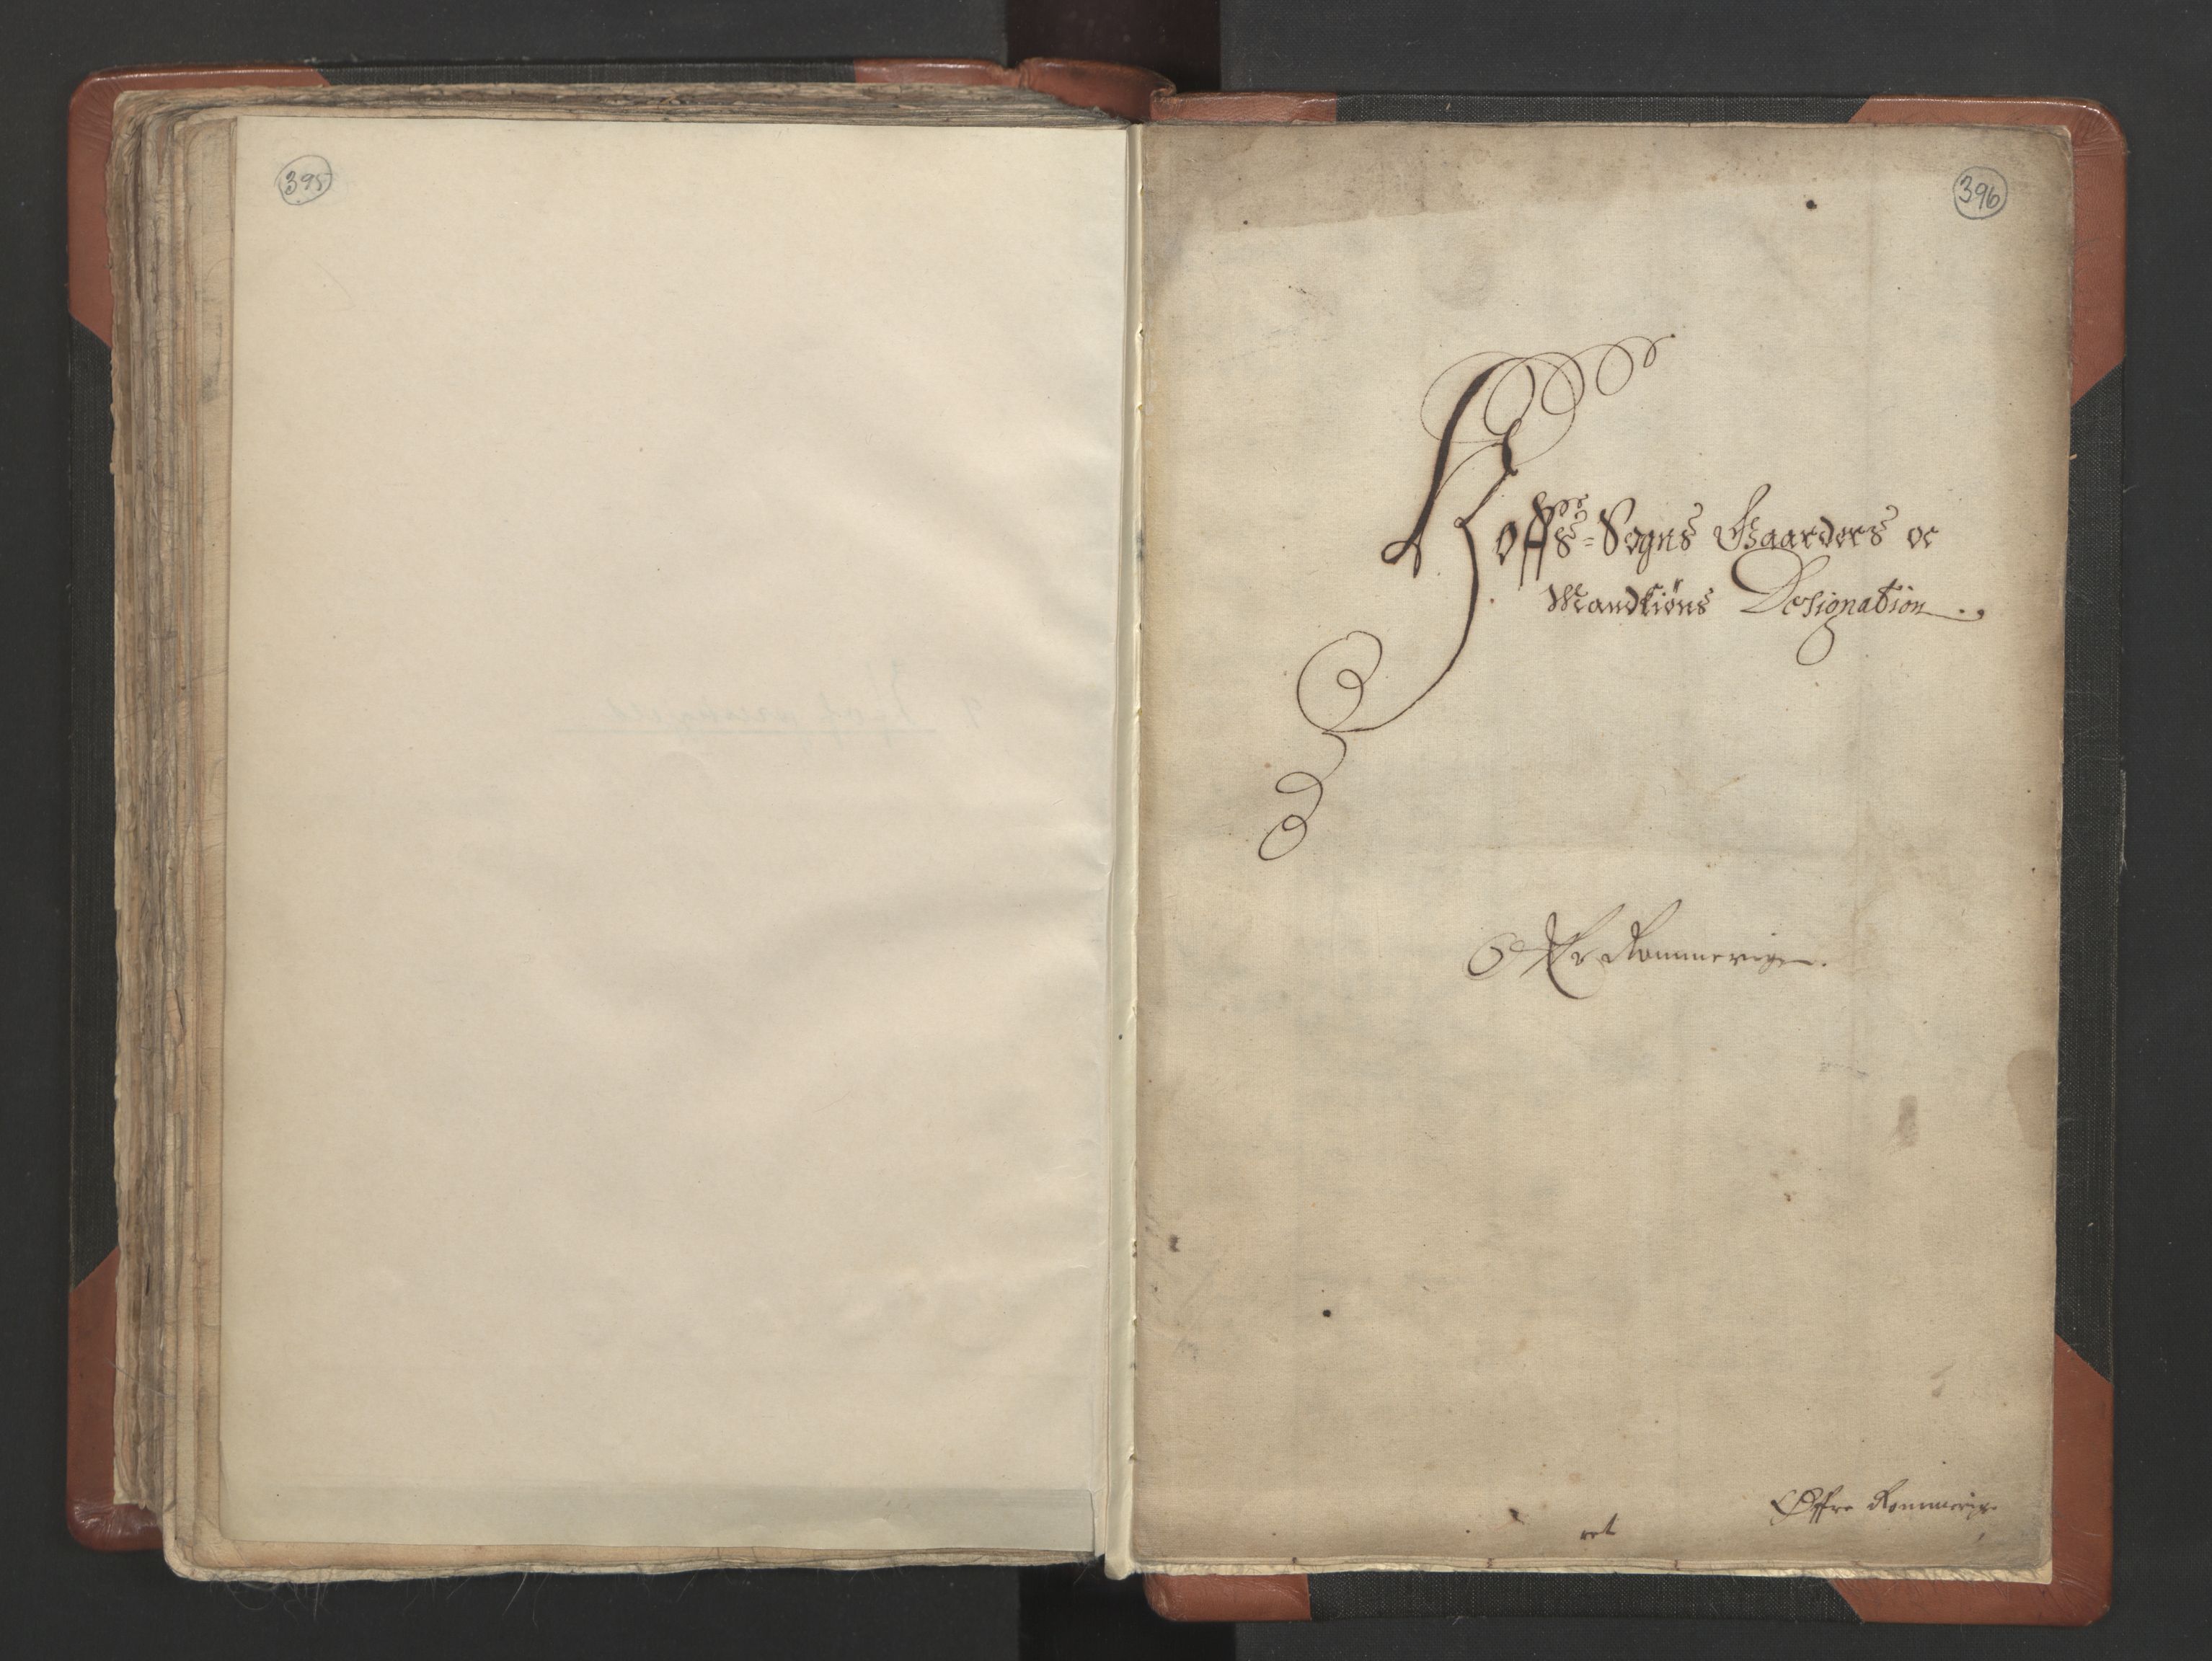 395
396
Hoffs-Sogns Gaarders oc
Mandkiøns Designation.
Øffre Rommerige.
Øffre Rommerige
ret